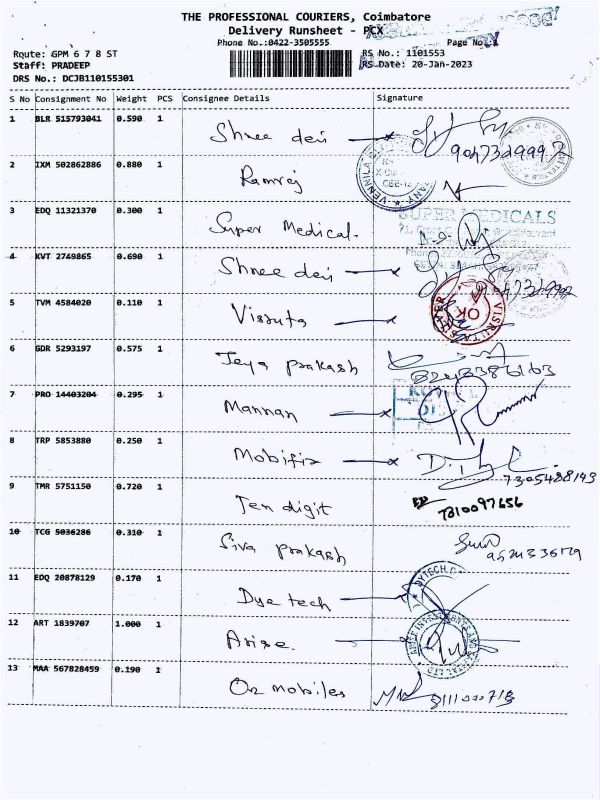 THE PROFESSIONAL COURIERS, Coimbatore
Delivery Runsheet - PCX
Phone No.:0422-3505555 Page No.:
Route: GPM 6 7 8 ST RS No.: 1101553
Staff: PRADEEP RS Date: 20-Jan-2023
DRS No.: DCJB110155301
S No Consignment No Weight PCS Consignee Details Signature
1 BLR 515793041 0.590 1 Shree devi 9047329992
2 IXM 502862886 0.880 1 Ramraj
3 EDQ 11321370 0.300 1 Super Medical. SUPER MEDICALS
4 KVT 2749865 0.690 1 Shree devi 9047329992
5 TVM 4584020 0.110 1 Visruta OK
6 GDR 5293197 0.575 1 Jeya prakash
7 PRO 14403204 0.295 1 Mannan
8 TRP 5853880 0.250 1 Mobifix 7305488143
9 TMR 5751150 0.720 1 Ten digit 7810097656
10 TCG 5036286 0.310 1 Siva prakash
11 EDQ 20878129 0.170 1 Dye tech DYTECH
12 ART 1839707 1.000 1 Arise.
13 MAA 567828459 0.190 1 On mobiles